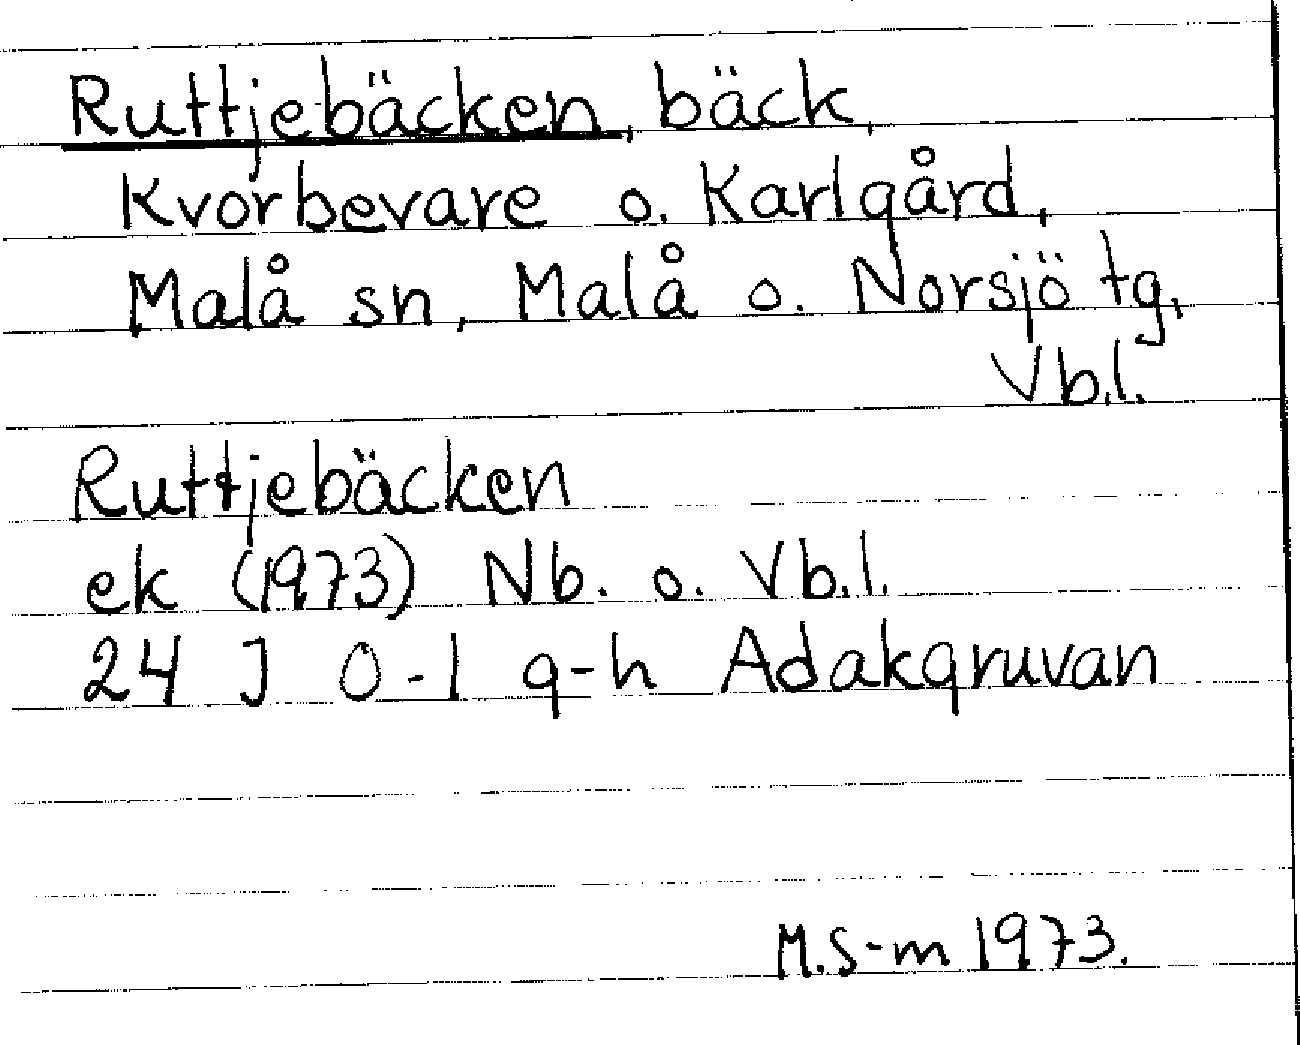 Ruttjebäcken, bäck,
Kvorbevare o. Karlgård,
Malå sn, Malå o. Norsjö tg,
Vb.l.
Ruttjebäcken
ek (1973) Nb. o. Vb.l.
24 J 0-1 g-h Adakgruvan
M.S-m 1973.